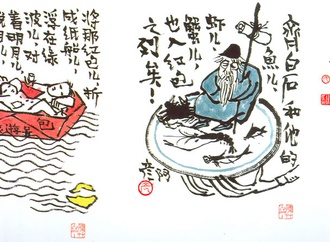 齊白石和他的
魚儿、
虾儿、
蟹儿、
也入红包
之列矣！
將那红包儿折
成纸船儿，
浮在绿
波儿，对
着明月儿，
包